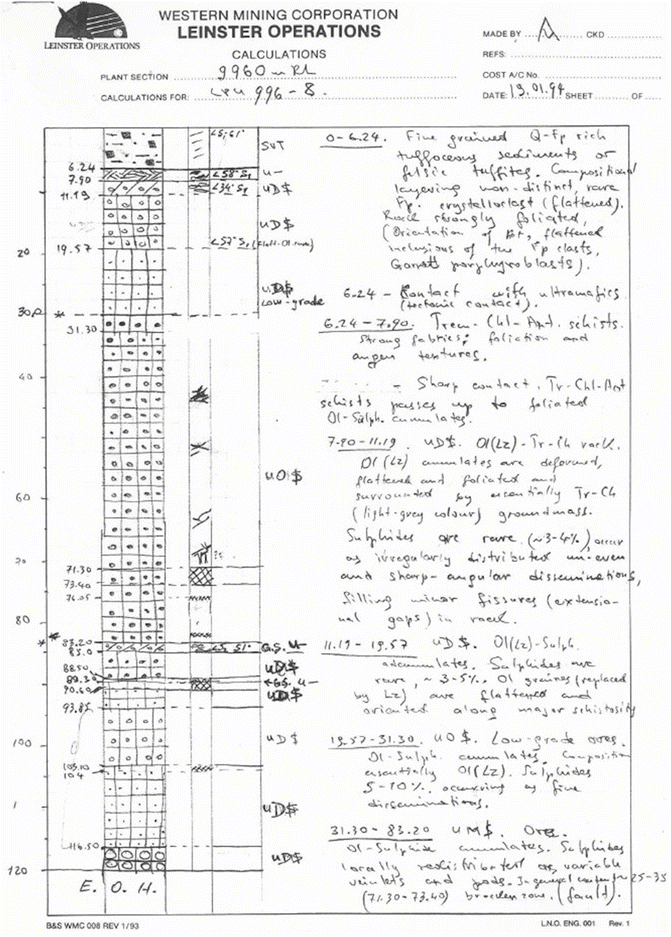 WESTERN MINING CORPORATION
LEINSTER OPERATIONS
LEINSTER OPERATIONS
CALCULATIONS
MADE BY CKD
REFS:
PLANT SECTION 9960 m RL
COST A/C No.
CALCULATIONS FOR: 996-8.
DATE: 13.01.94 SHEET OF
6.24
7.90
11.19
20
19.57
30.0 *
31.30
40
60
71.30
73.40
76.05
80
* 83.20
85.0
88.50
90.60
93.85
100
103.10
104
116.50
120
E. O. H.
SVT
U-
UD$
UD$
UD$
Low-grade
UO$
G.S. U-
UD$
UD$
UD$
UD$
UD$
0-6.24. Fine grained Q-Fp rich
tuffoceous sediments or
felsic tuffites. Compositional
layering non-distinct, rare
Fp. crystalloclast (flattened).
Rock strongly foliated,
(Orientation of Bt, flattened
inclusions of the Fp clasts,
Garnet porphyroblasts).
6.24 - Contact with ultramafics
(tectonic contact).
6.24-7.90. Trem-Chl-Ant. schists.
Strong fabrics: foliation and
augen textures.
- Sharp contact. Tr-Chl-Ant
schists passes up to foliated
Ol-Sulph. cumulates.
7.90-11.19 UD$. Ol(Lz)-Tr-Ch rock.
Ol(Lz) cumulates are deformed,
flattened and foliated and
surrounded by essentially Tr-Ch
(light-grey colour) groundmass.
Sulphides are rare (~3-4%) occur
as irregularly distributed uneven
and sharp-angular disseminations,
filling minor fissures (extensio-
nal gaps) in rock.
11.19-19.57 UD$. Ol(Lz)-Sulph.
adcumulates. Sulphides are
rare, ~3-5%. Ol graines (replaced
by Lz) are flattened and
oriented along major schistosity
19.57-31.30. UO$. Low-grade ores.
Ol-Sulph. cumulates. Composition
essentially Ol(Lz). Sulphides
5-10%. occurring as fine
disseminations.
31.30-83.20 UM$. Ore.
Ol-Sulphide cumulates. Sulphides
locally redistributed as variable
veinlets and pods. In general content 25-35
(71.30-73.40) broken zone. (fault).
B&S WMC 008 REV 1/93
L.N.O. ENG. 001 Rev. 1